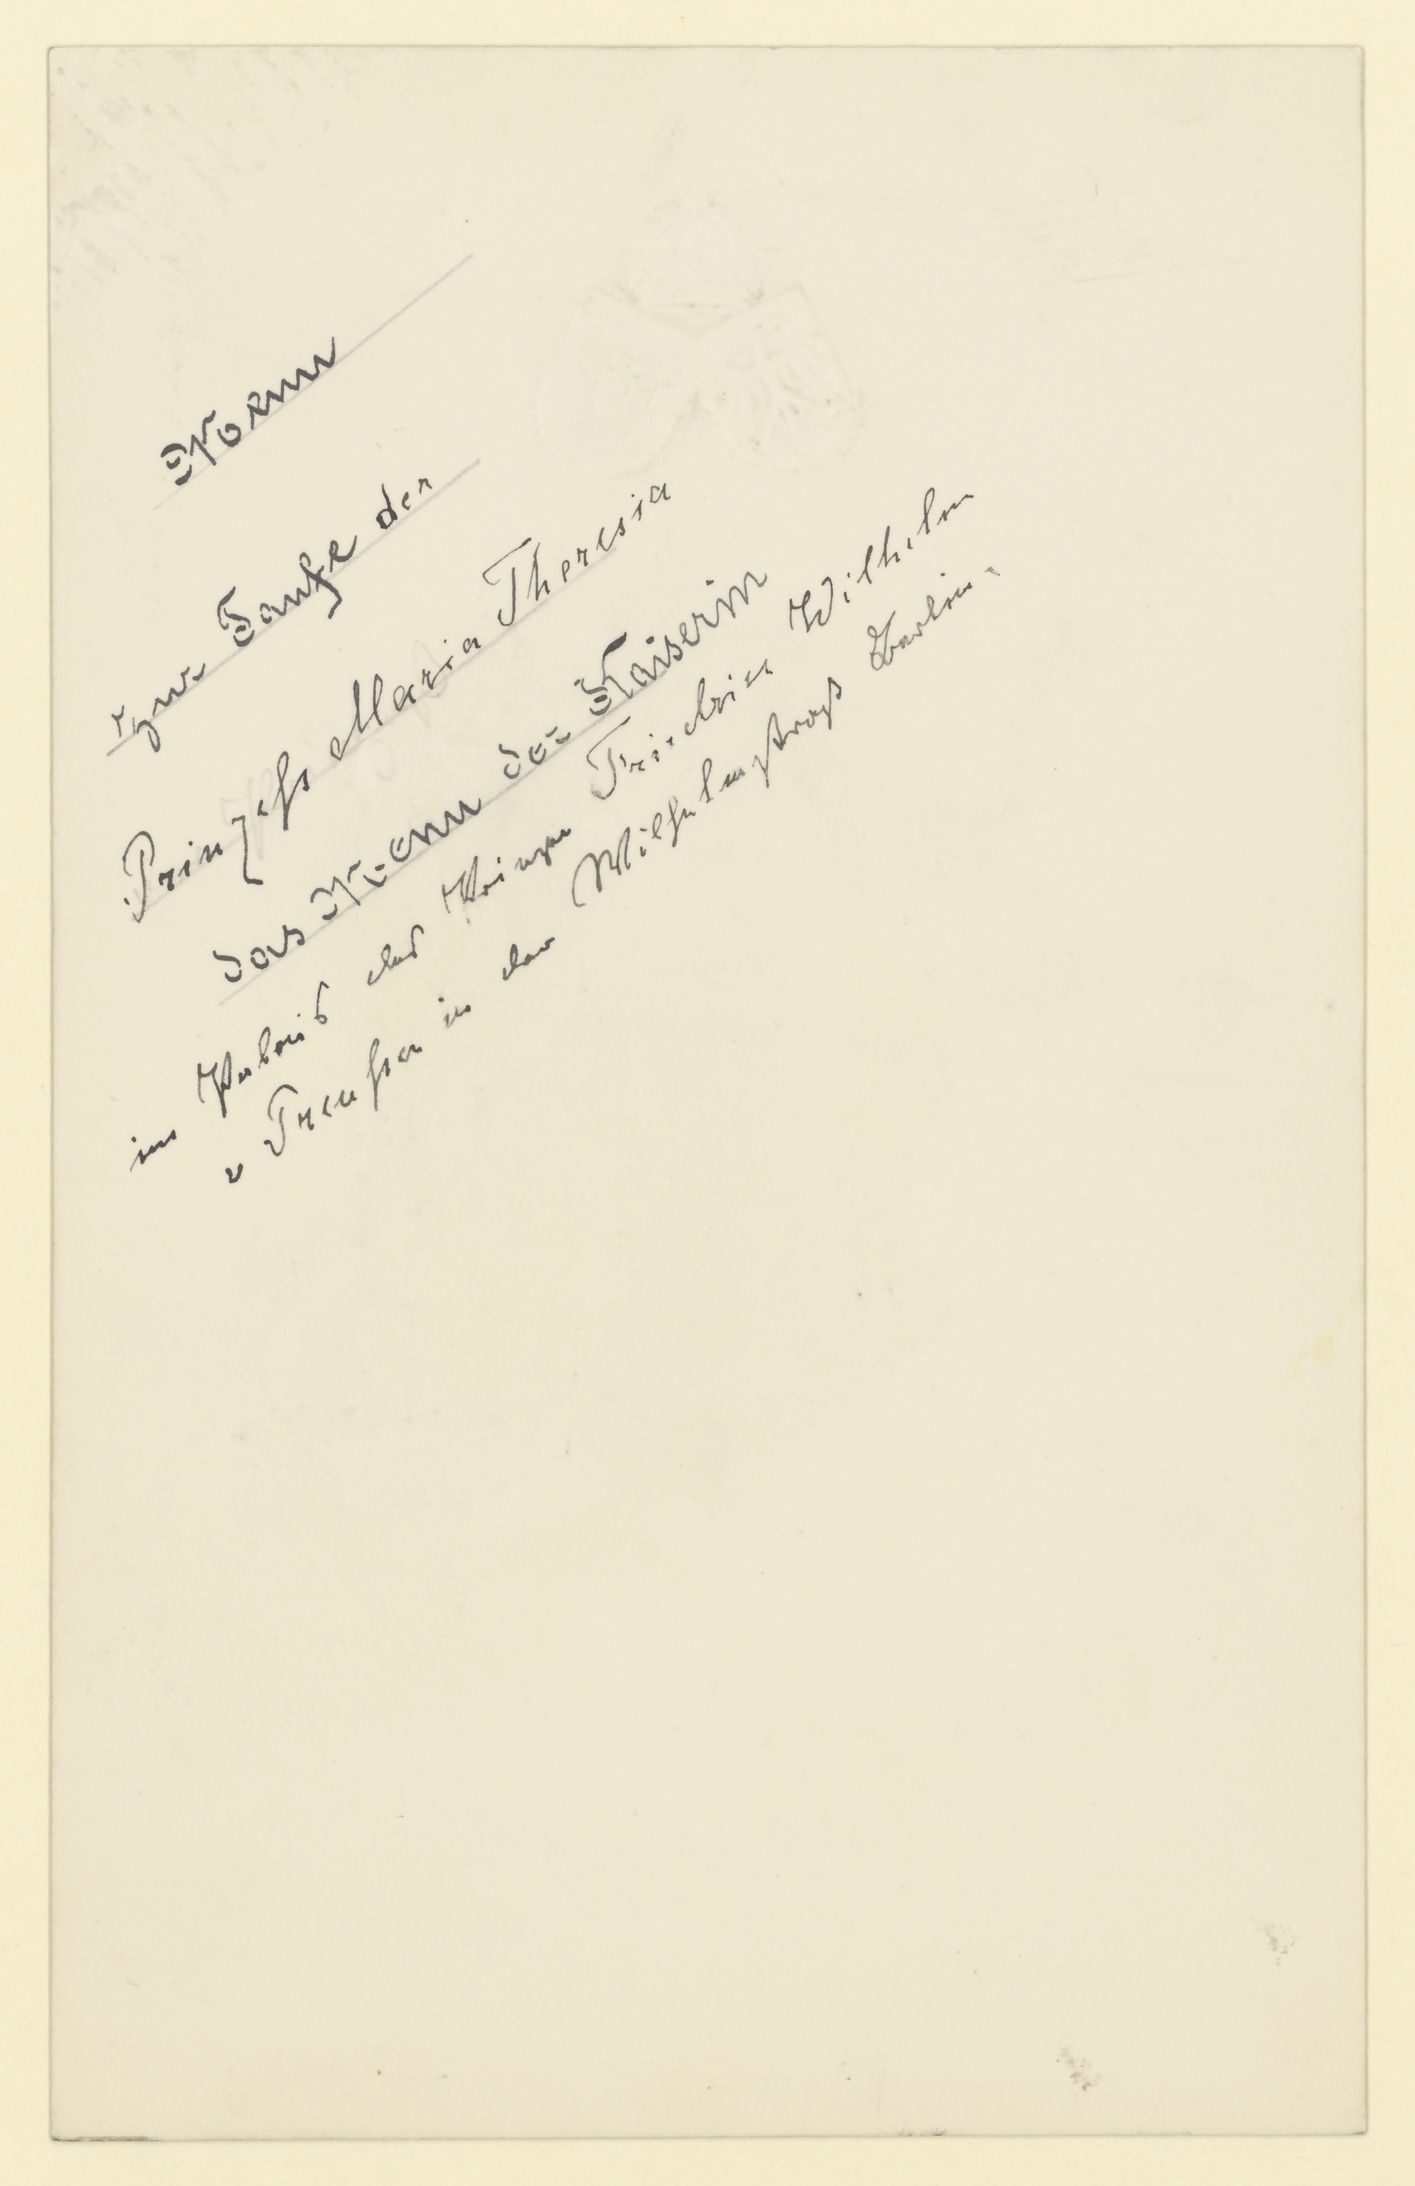 Menu
zur Taufe der
Prinzeſs Maria Theresia
das Menu der Kaiserin
im Palais des Prinzen Friedrich Wilhelm
v Preuſsen in der Wilhelmstraße Berlin.